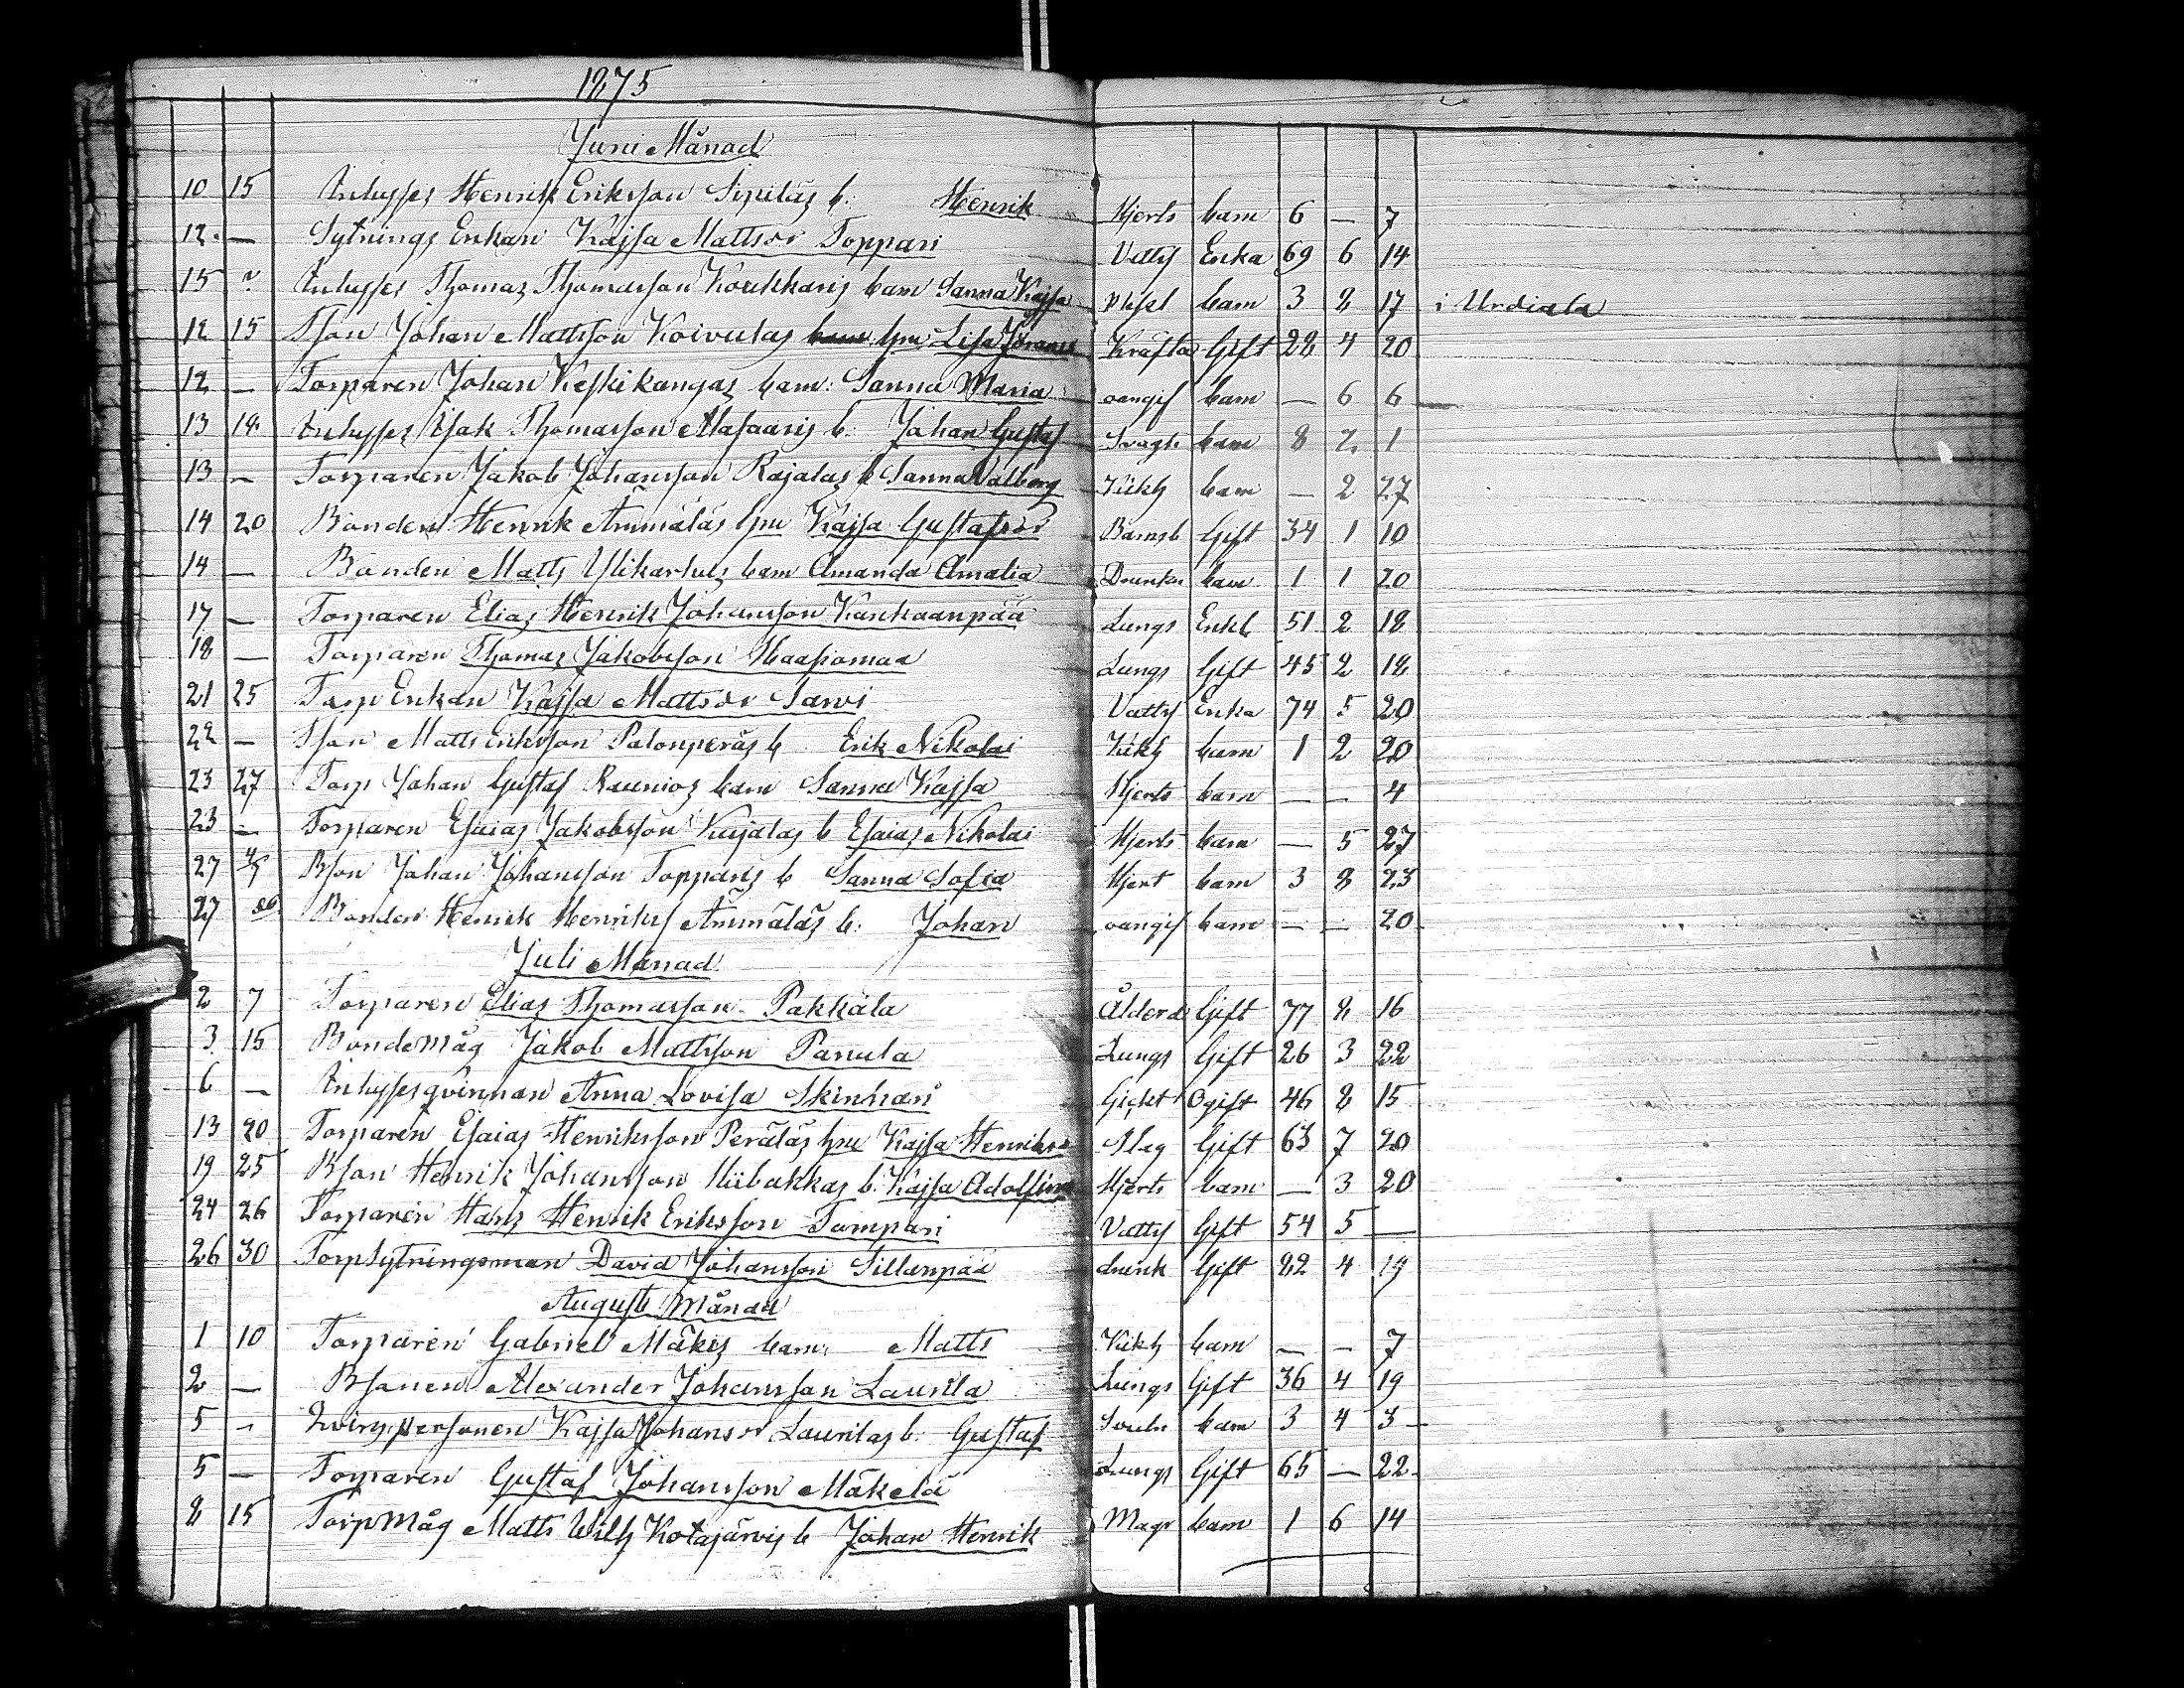 1875
Juni Månad
10 15 Inhysses Henrik Eriksson Sipiläs b: Henrik Hjerts barn 6 — 7
12 — Sytnings Enkan Kajsa Mattsdr Toppari Vatts Enka 69 6 14
15 ? Inhysses Thomas Thomasson Koukkaris barn Sanna Kajsa barn 3 8 17 i Urdiala
12 15 Sson Johan Mattsson Koivulas hru Lisa Kräfta Gift 28 4 20
12 — Torparen Johan Keskikangas barn: Sanna Maria oangif barn — 6 6
13 18 Inhysses Isak Thomasson Alasaaris b. Johan Gustaf Svagh barn 8 2 1
13 — Torparen Jakob Johansson Rajalas b Sanna Valborg Kikh barn — 2 27
14 20 Bonden Henrik Ämmäläs hru Kajsa Gustafsdr Barnsb Gift 34 1 10
14 — Bonden Matts Ylikartuls barn Amanda Amalia Drunkn barn 1 1 20
17 — Torparen Elias Henrik Johansson Kankaanpää Lungs Enkl 51 2 18
18 — Torparen Thomas Jakobsson Haapiomaa Lungs Gift 45 2 18
21 25 Torp Enkan Kajsa Mattsdr Sarvi Vatts Enka 74 5 20
22 — Sson Matts Eriksson Palonperäs b Erik Nikolai Kikh barn 1 2 20
23 27 Torp Johan Gustaf Raunios barn Sanna Kajsa Hjerts barn — — 4
23 — Torparen Esaias Jakobsson Kujalas b Esaias Nikolai Hjerts barn — 5 27
27 4/7 Bson Johan Johansson Topparis b Sanna Sofia Hjert barn 3 8 23
27 Bonden Henrik Henrikss Ämmäläs b: Johan oangif barn — — 20
Juli Månad
2 7 Torparen Elias Thomasson Pakkala Ålderd Gift 77 8 16
3 15 Bondemåg Jakob Mattsson Panula Lungs Gift 26 3 22
6 — Inhysses qvinnan Anna Lovisa Skinnari Gicht Ogift 46 8 15
13 20 Torparen Esaias Henriksson Peräläs hru Kajsa Henriksdr Slag Gift 63 7 20
19 25 Bson Henrik Johansson Hiibakkas b. Kajsa Adolfina Hjerts barn — 3 20
24 26 Torparen Hans Henrik Eriksson Tampari Vatts Gift 54 5 —
26 30 Torpsytningsman David Johansson Sillanpää drunk Gift 82 4 19
Augusti Månad
1 10 Torparen Gabriel Mäkis barn: Matts Kikh barn — — 7
2 — Bsonen Alexander Johansson Laurila Lungs Gift 36 4 19
5 — personen Kajsa Johansdr Laurilas b: Gustaf barn 3 4 3
5 — Torparen Gustaf Johansson Mäkelä Lungs Gift 65 — 22
8 15 Torpmåg Matts Wilh Kotajärvis b Johan Henrik Magr barn 1 6 14